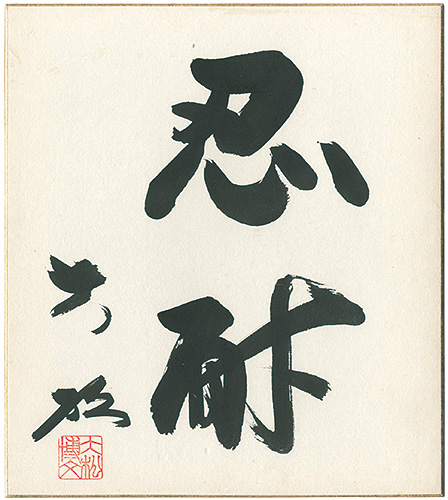 忍耐
大松
大松博文